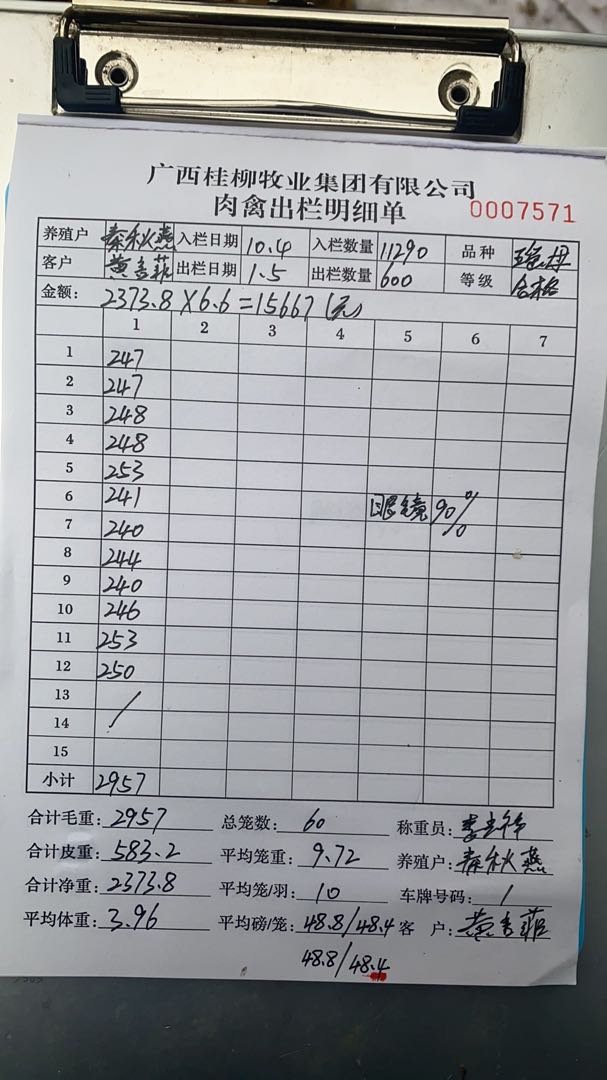 广西桂柳牧业集团有限公司
肉禽出栏明细单 0007571
养殖户 秦秋燕 入栏日期 10.4 入栏数量 11290 品种
客户 黄 菲 出栏日期 1.5 出栏数量 600 等级 合格
金额: 2373.8×6.6=15667(元)
1 2 3 4 5 6 7
1 247
2 247
3 248
4 248
5 253
6 241 眼镜 90%
7 240
8 244
9 240
10 246
11 253
12 250
13 /
14
15
小计 2957
合计毛重: 2957 总笼数: 60 称重员: 李
合计皮重: 583.2 平均笼重: 9.72 养殖户: 秦秋燕
合计净重: 2373.8 平均笼/羽: 10 车牌号码: /
平均体重: 3.96 平均磅/笼: 48.8/48.4 客 户: 黄 菲
48.8/48.4